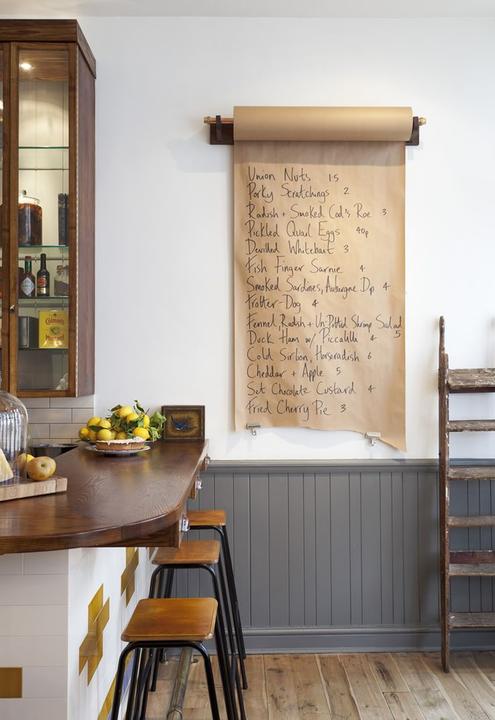 Union Nuts 1.5
Porky Scratchings 2
Radish + Smoked Cod's Roe 3
Pickled Quail Eggs 40p
Devilled Whitebait 3
Fish Finger Sarnie 4
Smoked Sardines, Aubergine Dip 4
Trotter-Dog 4
Fennel, Radish + Un-Potted Shrimp Salad
Duck Ham w/ Piccalilli 4 5
Cold Sirloin, Horseradish 6
Cheddar + Apple 5
Set Chocolate Custard 4
Fried Cherry Pie 3
Colman's